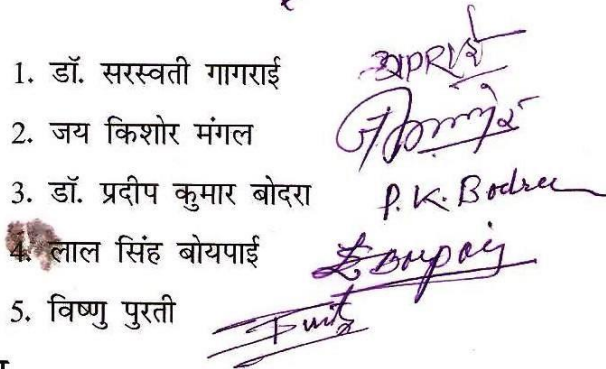 1. डॉ. सरस्वती गागराई
2. जय किशोर मंगल
3. डॉ. प्रदीप कुमार बोदरा P.K. Bodra
4. लाल सिंह बोयपाई
5. विष्णु पुरती